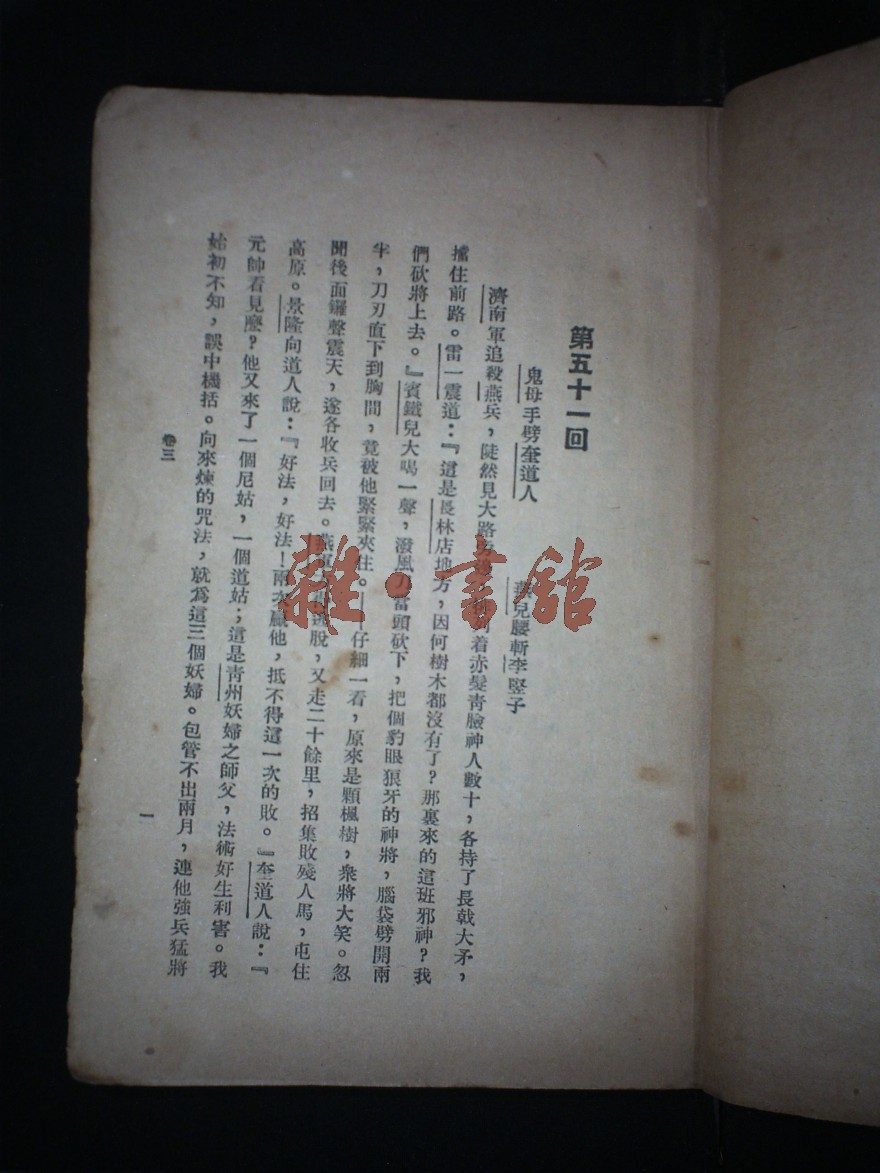 第五十一回
鬼母手劈奎道人 燕兒腰斬李竪子
濟南軍追殺燕兵，陡然見大路 着赤髮靑臉神人數十，各持了長戟大矛，
擋住前路。雷一震道：『這是長林店地方，因何樹木都沒有了？那裏來的這班邪神？我
們砍將上去。』賓鐵兒大喝一聲，潑風刀當頭砍下，把個豹眼狼牙的神將，腦袋劈開兩
半，刀刃直下到胸間，竟被他緊緊夾住。 仔細一看，原來是顆楓樹，衆將大笑。忽
聞後面鑼聲震天，遂各收兵回去。燕軍 脫，又走二十餘里，招集敗殘人馬，屯住
高原。景隆向道人說：『好法，好法！兩次贏他，抵不得這一次的敗。』奎道人說：『
元帥看見麼？他又來了一個尼姑，一個道姑；這是靑州妖婦之師父，法術好生利害。我
始初不知，誤中機括。向來煉的咒法，就爲這三個妖婦。包管不出兩月，連他強兵猛將
卷三
一
雜·書館